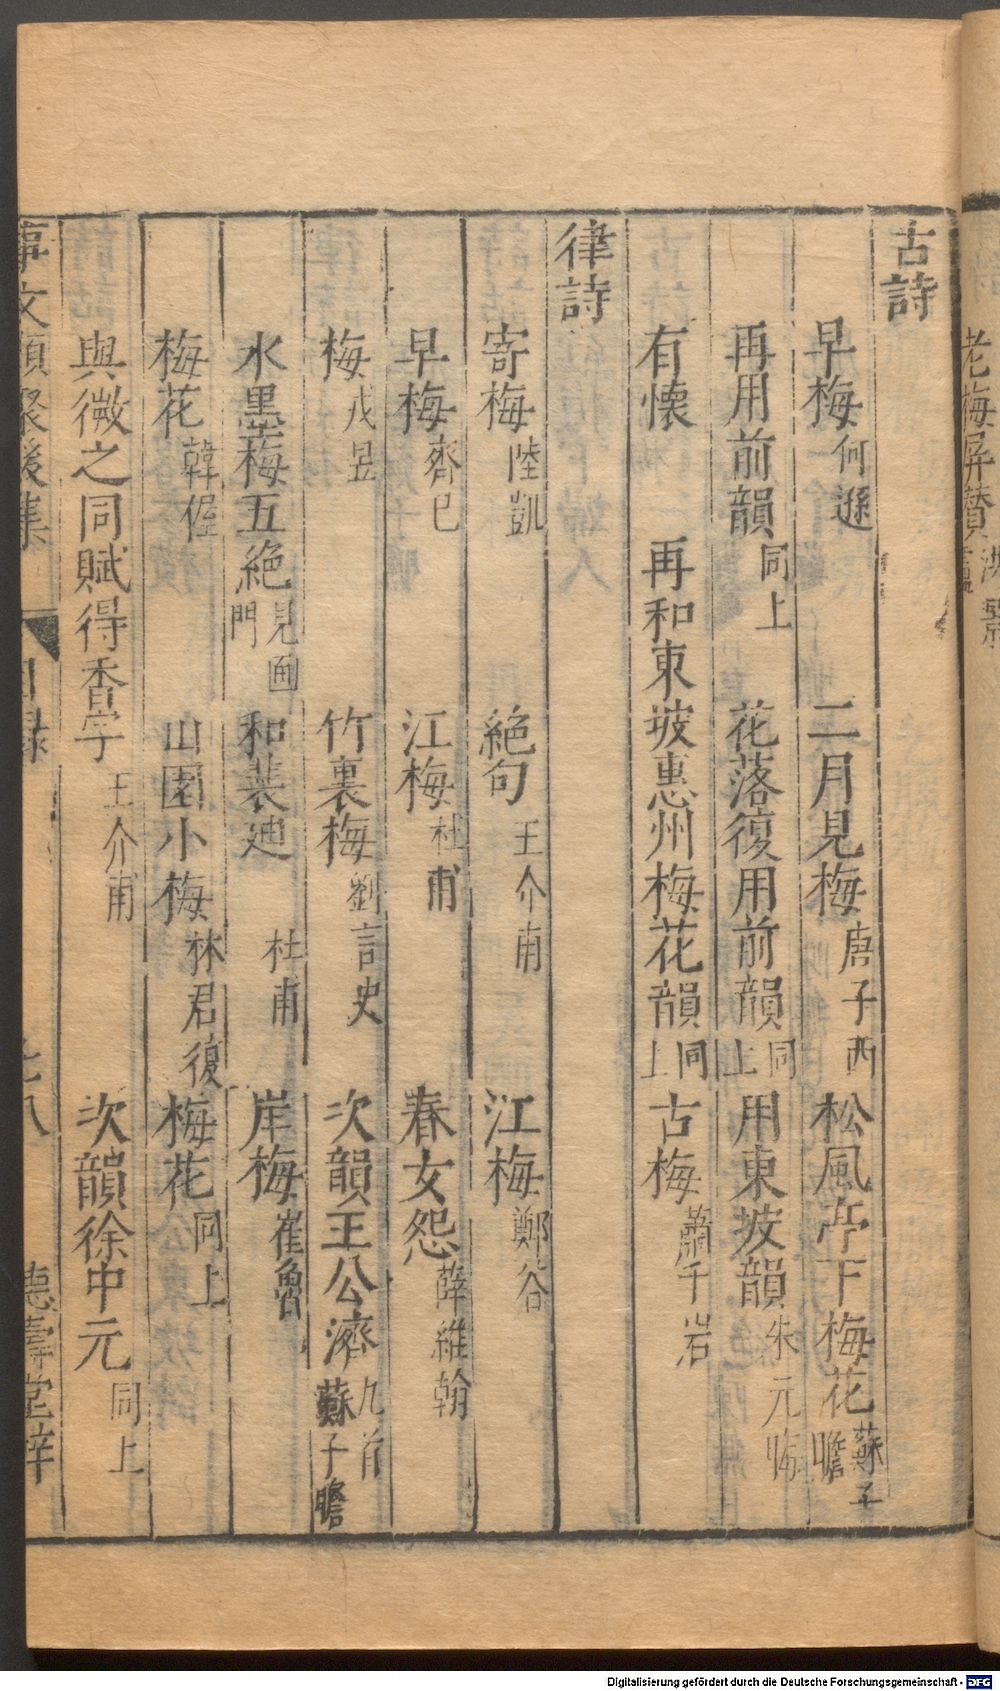 老梅屏贊
古詩
早梅 何遜 二月見梅 唐子西 松風亭下梅花 蘇子瞻
再用前韻 同上 花落復用前韻 同上 用東坡韻 朱元晦
有懷 再和東坡惠州梅花韻 同上 古梅 蕭千岩
律詩
寄梅 陸凱 絕句 王介甫 江梅 鄭谷
早梅 齊已 江梅 杜甫 春女怨 薛維翰
梅 戎昱 竹裏梅 劉言史 次韻王公濟 九首 蘇子瞻
水墨梅五絕 見畫門 和裴迪 杜甫 岸梅 崔魯
梅花 韓偓 山園小梅 林君復 梅花 同上
與微之同賦得香字 王介甫 次韻徐中元 同上
事文類聚後集 目錄 七八 德壽堂梓
Digitalisierung gefördert durch die Deutsche Forschungsgemeinschaft - DFG